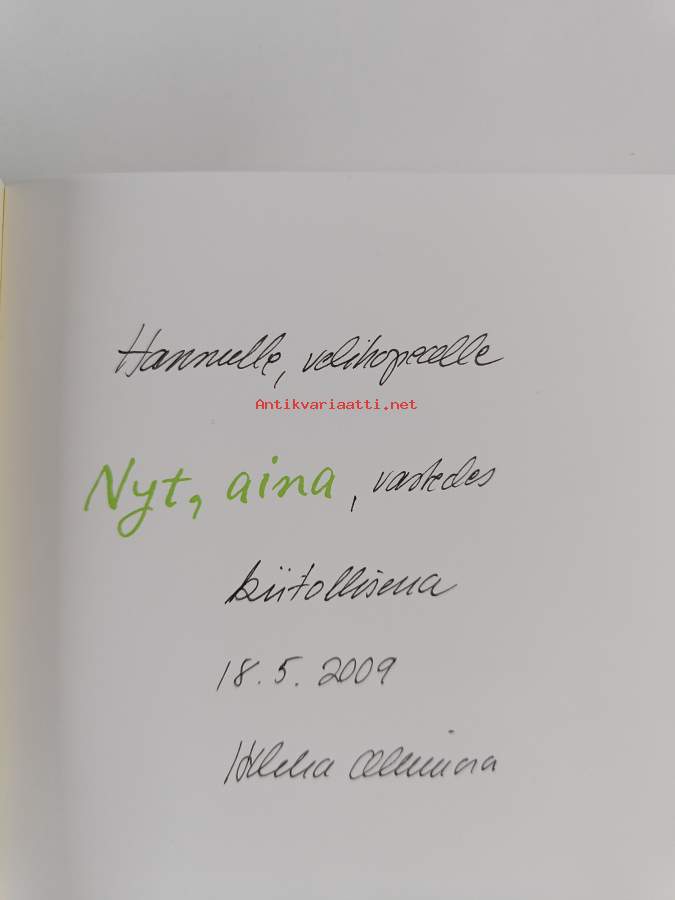 Hannulle, velihopealle
Antikvariaatti.net
Nyt, aina, vastedes
kiitollisena
18.5.2009